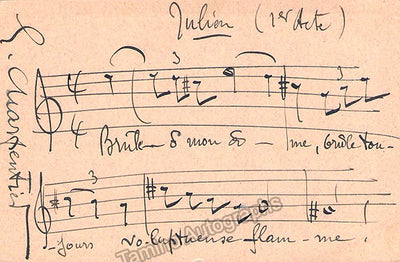 Julien (1er Acte)
G. Charpentier
3
Brûle ô mon âme, brûle tou-
3
-jours vo-luptueuse flam-me.
Tamino Autographs